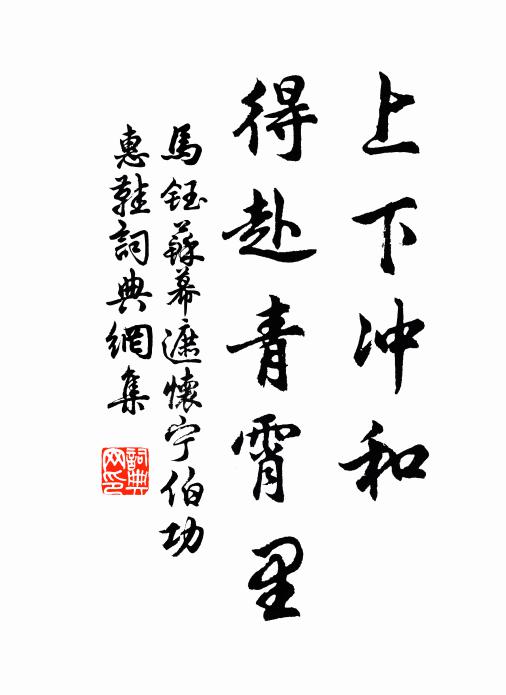 上下冲和
得赴青霄里
馬鈺蘇幕遮懷宁伯功
惠鞋詞典網集
詞典网印